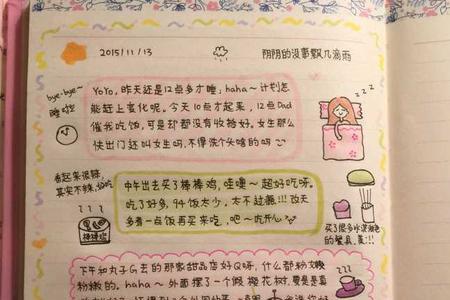 2015/11/13
阴阴的没事飘几滴雨
bye~bye~
睡啦
YoYo,昨天还是12点多才睡,haha~计划怎
能赶上变化呢,今天10点才起来,12点Dad
催我吃饭,可是却都没有收拾好。女生那么
快出门还叫女生吗,不得洗个头啥的吗
zzz
看起来很辣,
其实不辣,哈哈
棒棒鸡
中午出去买了棒棒鸡,哇哩~超好吃呀。
吃了好多,9午饭太少,太不过瘾!!!改天
多煮一点饭再买来吃,吧~吃开心
买了很多水漾颜色
的餐具,美!!!
下午和丸子G去的那家甜品店好Q呀,什么都粉嫩
粉嫩的。haha~外面摆了一个假樱花树,要是真